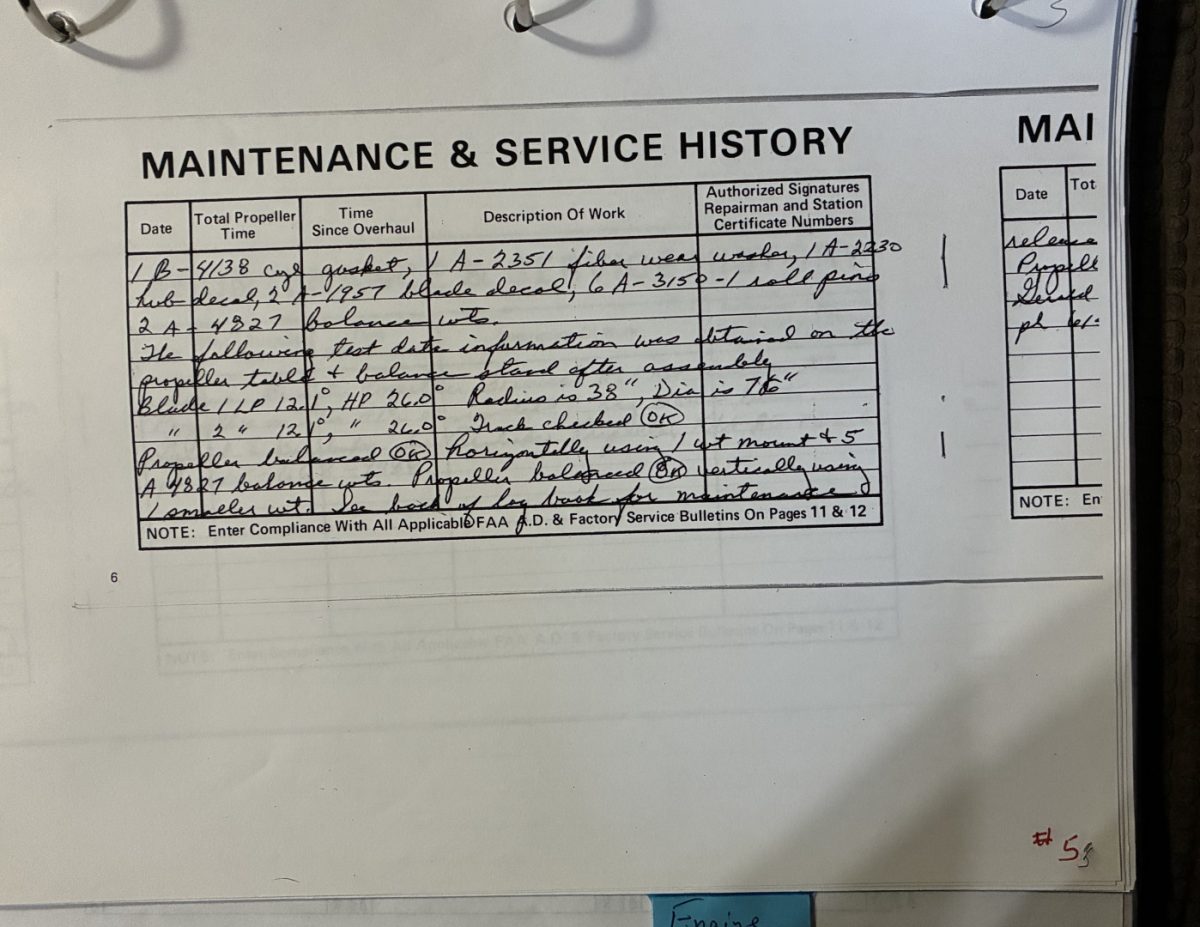 MAINTENANCE & SERVICE HISTORY
Date
Total Propeller Time
Time Since Overhaul
Description Of Work
Authorized Signatures Repairman and Station Certificate Numbers
1 B-4138 cyl gasket, 1 A-2351 fiber wear washer, 1 A-2230
hub decal, 2 A-1957 blade decal, 6 A-3150-1 roll pins
2 A-4827 balance wts.
The following test data information was obtained on the
propeller table & balance stand after assembly
Blade 1 LP 12.1°, HP 26.0° Radius is 38", Dia is 76"
" 2 " 12.1°, " 26.0° Track checked OK
Propeller balanced OK horizontally using 1 wt mount & 5
A 4827 balance wts. Propeller balanced OK vertically using
1 smaller wt. See back of log book for maintenance
NOTE: Enter Compliance With All Applicable FAA A.D. & Factory Service Bulletins On Pages 11 & 12
6
MAI
Date
Tot
release
Propell
Gerald
ph
NOTE: En
# 5
Engine